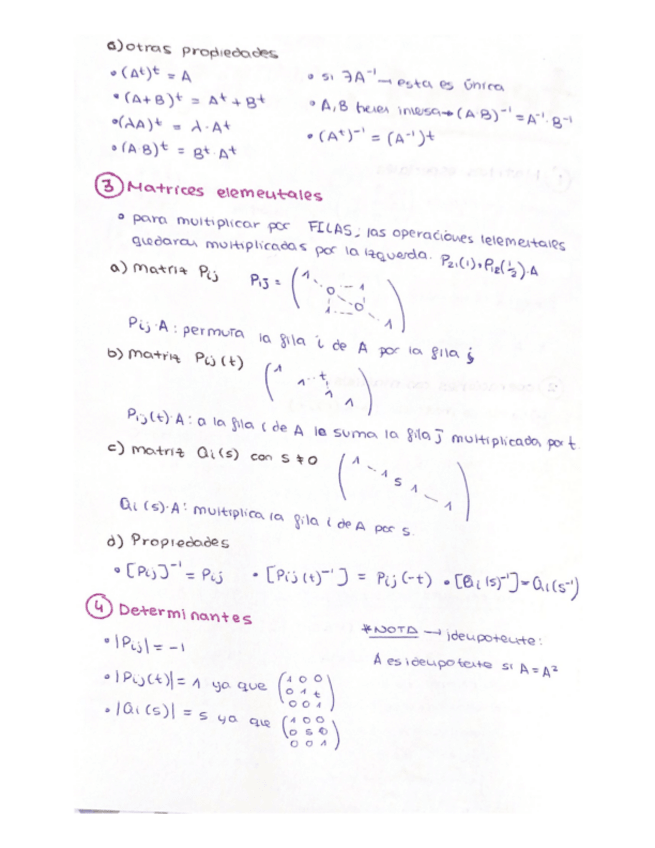 d) otras propiedades
• (Aᵗ)ᵗ = A
• (A+B)ᵗ = Aᵗ + Bᵗ
• (λA)ᵗ = λ·Aᵗ
• (A·B)ᵗ = Bᵗ·Aᵗ
• si ∃A⁻¹ → esta es única
• A, B tienen inversa → (A·B)⁻¹ = A⁻¹·B⁻¹
• (Aᵗ)⁻¹ = (A⁻¹)ᵗ
③ Matrices elementales
• para multiplicar por FILAS, las operaciones elementales
quedaran multiplicadas por la izquierda. P₂₁(1), P₁₂(½)·A
a) matriz Pij Pij = (1 0 1 1 0 1)
Pij·A: permuta la fila i de A por la fila j
b) matriz Pij(t) (1 1 t 1 1)
Pij(t)·A: a la fila i de A le suma la fila j multiplicada por t.
c) matriz Qi(s) con s≠0 (1 1 s 1 1)
Qi(s)·A: multiplica la fila i de A por s.
d) Propiedades
• [Pij]⁻¹ = Pij • [Pij(t)⁻¹] = Pij(-t) • [Qi(s)⁻¹] = Qi(s⁻¹)
④ Determinantes
• |Pij| = -1
• |Pij(t)| = 1 ya que (1 0 0
0 1 t
0 0 1)
• |Qi(s)| = s ya que (1 0 0
0 s 0
0 0 1)
*NOTA → idempotente:
A es idempotente si A = A²